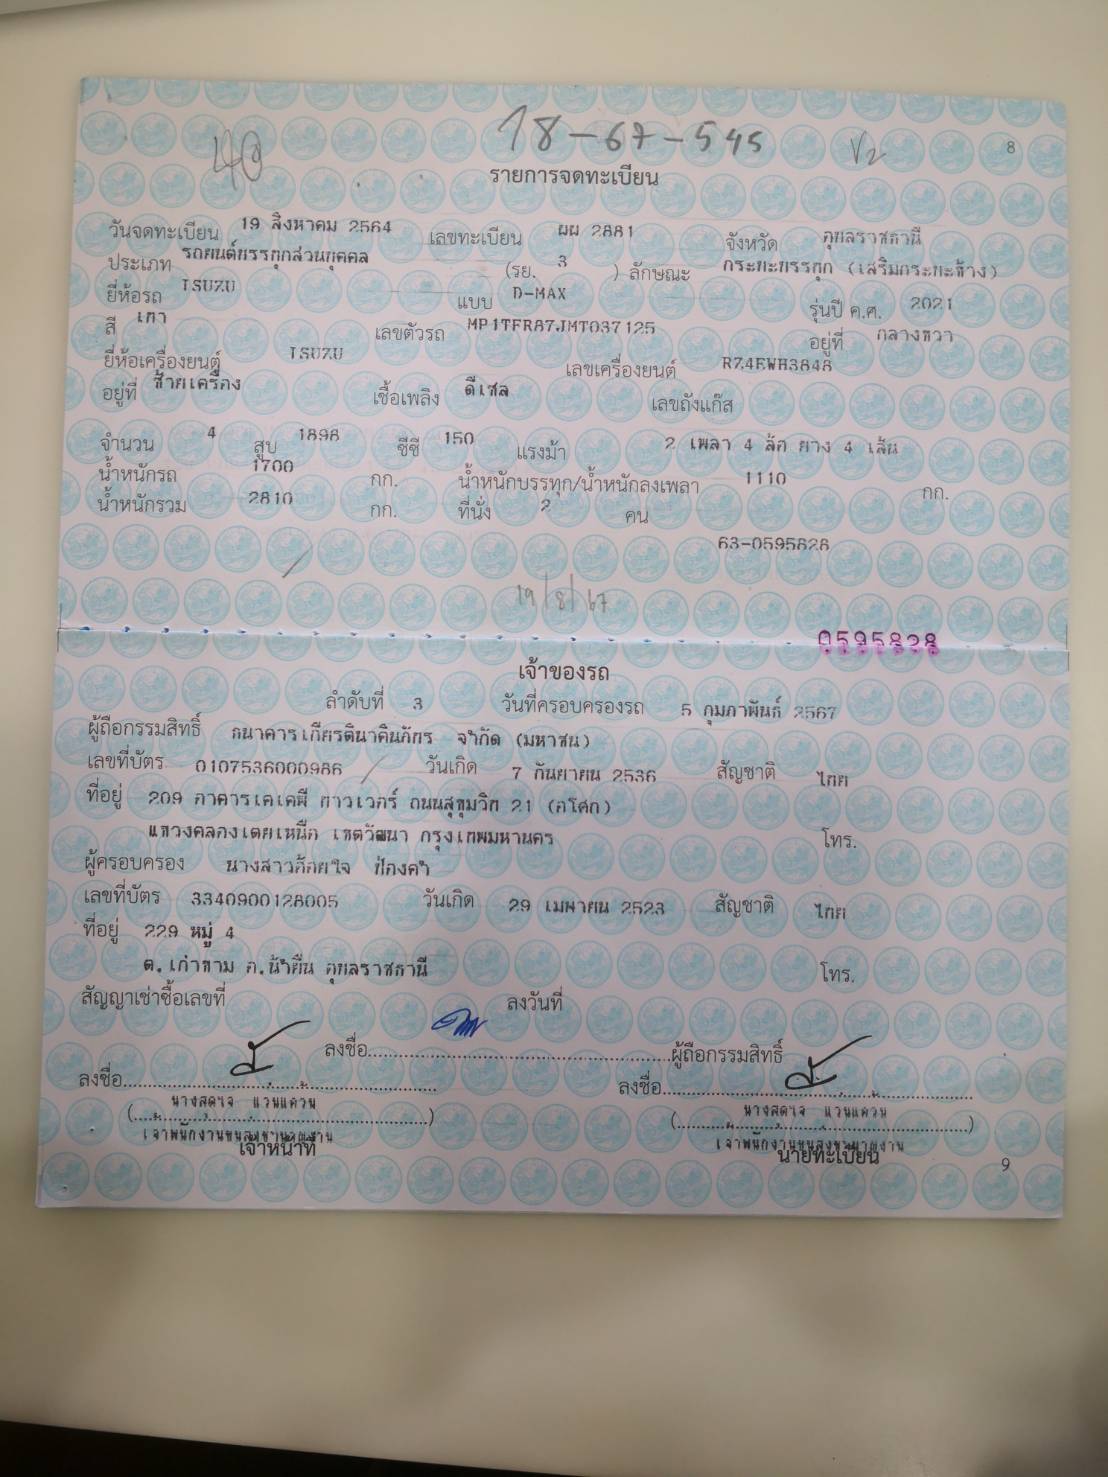 40 18-67-545 V2 8
รายการจดทะเบียน
วันจดทะเบียน 19 สิงหาคม 2564 เลขทะเบียน ผผ 2881 จังหวัด อุบลราชธานี
ประเภท รถยนต์บรรทุกส่วนบุคคล (รย. 3 ) ลักษณะ กระบะบรรทุก (เสริมกระบะข้าง)
ยี่ห้อรถ ISUZU แบบ D-MAX รุ่นปี ค.ศ. 2021
สี เทา เลขตัวรถ MP1TFR87JMT037125 อยู่ที่ กลางขวา
ยี่ห้อเครื่องยนต์ ISUZU เลขเครื่องยนต์ RZ4EWH3848
อยู่ที่ ซ้ายเครื่อง เชื้อเพลิง ดีเซล เลขถังแก๊ส
จำนวน 4 สูบ 1898 ซีซี 150 แรงม้า 2 เพลา 4 ล้อ ยาง 4 เส้น
น้ำหนักรถ 1700 กก. น้ำหนักบรรทุก/น้ำหนักลงเพลา 1110 กก.
น้ำหนักรวม 2810 กก. ที่นั่ง 2 คน
63-0595828
19/8/67
0595828
เจ้าของรถ
ลำดับที่ 3 วันที่ครอบครองรถ 5 กุมภาพันธ์ 2567
ผู้ถือกรรมสิทธิ์ ธนาคารเกียรตินาคินภัทร จำกัด (มหาชน)
เลขที่บัตร 0107536000986 วันเกิด 7 กันยายน 2536 สัญชาติ ไทย
ที่อยู่ 209 อาคารเคเคพี ทาวเวอร์ ถนนสุขุมวิท 21 (อโศก)
แขวงคลองเตยเหนือ เขตวัฒนา กรุงเทพมหานคร โทร.
ผู้ครอบครอง นางสาวก้อยใจ ป้องคำ
เลขที่บัตร 3340900128005 วันเกิด 29 เมษายน 2523 สัญชาติ ไทย
ที่อยู่ 229 หมู่ 4
ต.เก่าขาม อ.น้ำยืน อุบลราชธานี โทร.
สัญญาเช่าซื้อเลขที่ ลงวันที่
ลงชื่อ ผู้ถือกรรมสิทธิ์
ลงชื่อ ลงชื่อ
นางสุดใจ แว่นแคว้น นางสุดใจ แว่นแคว้น
เจ้าพนักงานขนส่งชำนาญงาน เจ้าพนักงานขนส่งชำนาญงาน
เจ้าหน้าที่ นายทะเบียน
9